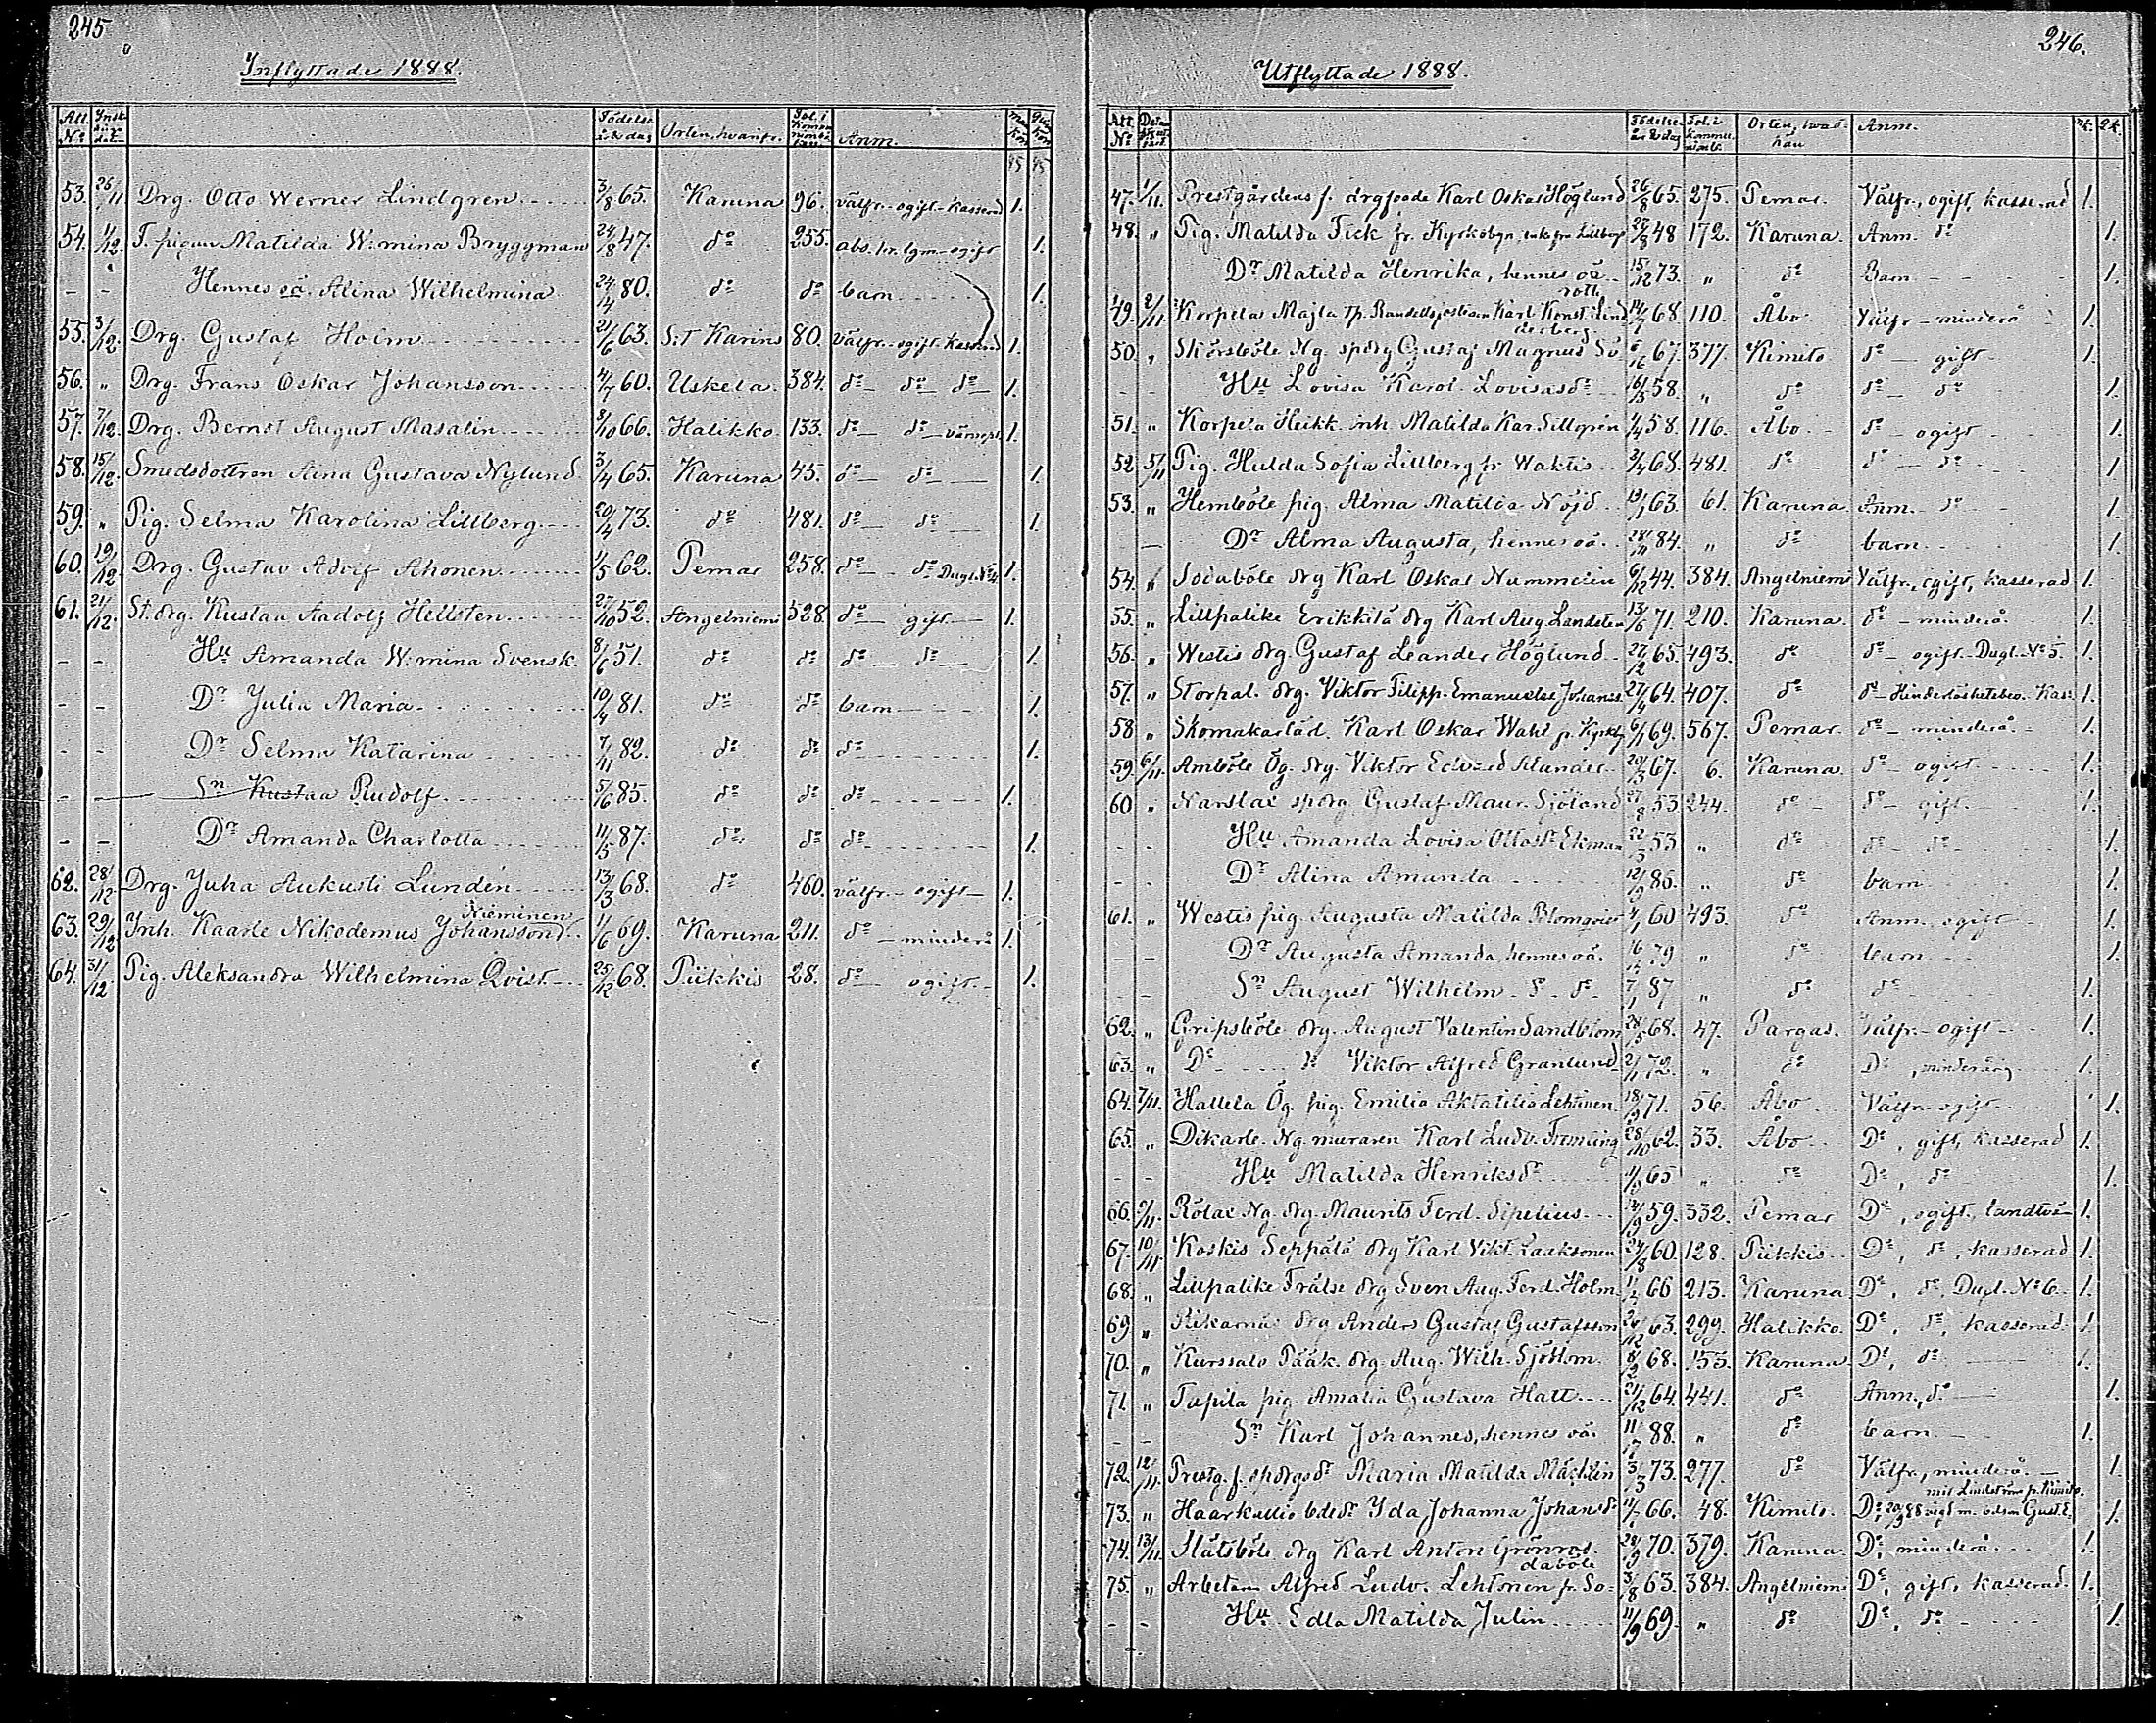 245
Inflyttade 1888.
Att. No Födelse år & dag Orten, hvarifr. Anm.
53. 26/11 Drg. Otto Werner Lindgren 3/8 65. Karuna 96. välfr. ogift kasserad 1.
54. 1/12 F. pigan Matilda W:mina Bryggman 24/8 47. do 255. abs. ogift 1.
- - Hennes oä. Alina Wilhelmina 24/4 80. do do barn 1.
55. 3/12. Drg. Gustaf Holm 21/6 63. S:t Karins 80. välfr. ogift kasserad 1.
56. " Drg. Frans Oskar Johansson 4/7 60. Uskela. 384. do do do 1.
57. 7/12. Drg. Berndt August Masalin 8/10 66. Halikko 133. do do värnepl. 1.
58. 15/12. Smedsdottren Aina Gustava Nylund 3/4 65. Karuna 45. do do 1.
59. " Pig. Selma Karolina Lillberg 20/4 73. do 481. do do 1.
60. 19/12. Drg. Gustav Adolf Ahonen 1/5 62. Pemar 258. do do Dugl. No 4 1.
61. 21/12. St.drg. Kustaa Aadolf Hellsten 27/10 52. Angelniemi 528. do gift 1.
- - Hu Amanda W:mina Svensk. 8/6 51. do do do do 1.
- - Dr Julia Maria 10/4 81. do do barn 1.
- - Dr Selma Katarina 7/11 82. do do do 1.
- - Sn Kustaa Rudolf 5/6 85. do do do 1.
- - Dr Amanda Charlotta 11/5 87. do do do 1.
62. 28/12 Drg. Juha Aukusti Lundén 13/3 68. do 460. välfr. ogift 1.
Nieminen
63. 29/12 Inh. Kaarle Nikodemus Johansson 1/6 69. Karuna 211. do minderå 1.
64. 31/12 Pig. Aleksandra Wilhelmina Qvist 25/12 68. Piikkis 28. do ogift 1.
246.
Utflyttade 1888.
Att. No Födelse år & dag Fol. i Orten, hvart- hän Anm. mk. qk.
47. 1/11. Prestgårdens f. drg Karl Oskar Höglund 26/8 65. 275. Pemar. Välfr., ogift, kasserad 1.
48. " Pig. Matilda Fick fr. Kyrkobyn 27/8 48 172. Karuna. Anm. do 1.
Dr Matilda Henrika, hennes oä 15/12 73. " do Barn 1.
49. 2/11. Korpelas Majla Karl Konst. Lind 14/7 68. 110. Åbo Välfr. minderå 1.
derberg.
50. " Skärsböle Ng. spdrg Gustaf Magnus 67. 377. Kimito do gift 1.
- - Hu Lovisa Karol. Lovisasdr 16/5 58. " do do do 1.
51. " Korpela Heikk. inh. Matilda Kar. Sillgrén 1/4 58. 116. Åbo do ogift 1.
52. 5/11 Pig. Hulda Sofia Lillberg fr. Waktis 68. 481. do do do 1.
53. " Hemböle pig. Alma Matilda Nöjd 63. 61. Karuna Anm. do 1.
- Dr Alma Augusta, hennes oä. 28/11 84. " do barn 1.
54. " Sodaböle drg Karl Oskar Nummelin 6/12 44. 384. Angelniemi Välfr., ogift, kasserad 1.
55. " Lillpalike Erikkilä drg Karl Aug. Landsten 13/6 71. 210. Karuna. do minderå. 1.
56. " Westis drg Gustaf Leander Höglund 27/2 65. 493. do do ogift Dugl. No 5. 1.
57. " Storpal. drg. Viktor Filipp. Emanuelss. 27/4 64. 407. do do Hinderlöshetsbev. Kass. 1.
58 " Skomakarläd. Karl Oskar Wahl 6/1 69. 567. Pemar. do minderå. 1.
59. 6/11. Amböle Ög. drg. Viktor Edvard Alander 20/3 67. 6. Karuna. do ogift 1.
60 " Narslax spdrg Gustaf Maur. Sjölund 27/8 53. 244. do do gift 1.
- - Hu Amanda Lovisa Ottosdr Ekman 22/3 53 " do do do 1.
- - Dr Alina Amanda 86. " do barn 1.
61. " Westis pig. Augusta Matilda Blomqvist 60 493. do Anm. ogift 1.
- - Dr Augusta Amanda, hennes oä. 79 " do barn 1.
- - Sn August Wilhelm do do 7/1 87 " do do 1.
62. " Gripsböle drg. August Valentin Sandblom 28/5 68. 47. Pargas. Välfr. ogift 1.
63. " Do do Viktor Alfred Granlund 2/11 72. " do Do, minderårig 1.
64. 7/11. Hallela Ög. pig. Emilia Lehtinen 18/9 71. 56. Åbo Välfr. ogift 1.
65. " Dikarle. Ng. muraren Karl Ludv. Fremling 28/10 62. 33. Åbo Do, gift, kasserad 1.
- - Hu Matilda Henriksdr 65 " do Do, do 1.
66. 9/11. Rölax Ng. drg. Maurits Ferd. Sipelius 14/9 59. 332. Pemar Do, ogift, landtvä 1.
67. 10/11 Koskis Seppälä drg Karl Vikt. Laaksonen 24/8 60. 128. Piikkis Do, do, kasserad 1.
68. " Lillpalike Frälse drg Sven Aug. Ferd. Holm. 66 213. Karuna Do, do, Dugl. No 6. 1.
69 " Pikarnäs drg Anders Gustaf Gustafsson 26/12 63. 299. Halikko. Do, do, kasserad. 1.
70. " Kurssalo Pääk. drg Aug. Wilh. Sjöblom. 68. 155. Karuna Do, do 1.
71. " Tapila pig. Amalia Gustava Hatt 21/12 64. 441. do Anm., do 1.
- - Sn Karl Johannes, hennes oä. 11/7 88. " do barn 1.
72. 12/11. Prestg. f. spdrgsdr Maria Matilda Mäcklin 31/3 73. 277. do Välfr., minderå. 1.
73. " Haarkallio bdsdr Ida Johanna Johansdr 66. 48. Kimito. Do, vigd m. Gust. E. 1.
74. 13/11. Slätsböle drg Karl Anton Grönroos 28/9 70. 379. Karuna. Do, minderå. 1.
daböle
75. " Arbetaren Alfred Ludv. Lehtonen fr. So- 3/8 63. 384. Angelniemi Do, gift, kasserad. 1.
- - Hu Edla Matilda Julin 11/9 69. " do Do, do 1.